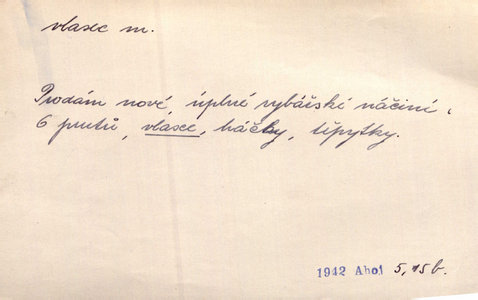 vlasec m.
Prodám nové, úplné rybářské náčiní,
6 prutů, vlasce, háčky, třpytky.
1942 Ahoj 5, 15b.